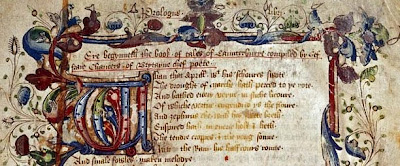 Prologus
Here begynneth the book of tales of Caunterburye compiled by Gef
fraie Chaucers of Brytayne chef poete
Whan that Aprill his schoures
The drought of marche hath perced to ye rote
And bathed euery veyne in suche licoure
Of whiche vertue engendred is the floure
And zephirus eke his breth
Enspired hath in euery holt & heth
The tendre croppes & the yong sonne
hath in the Ram his half cours ronne
And smale foules maken melodye